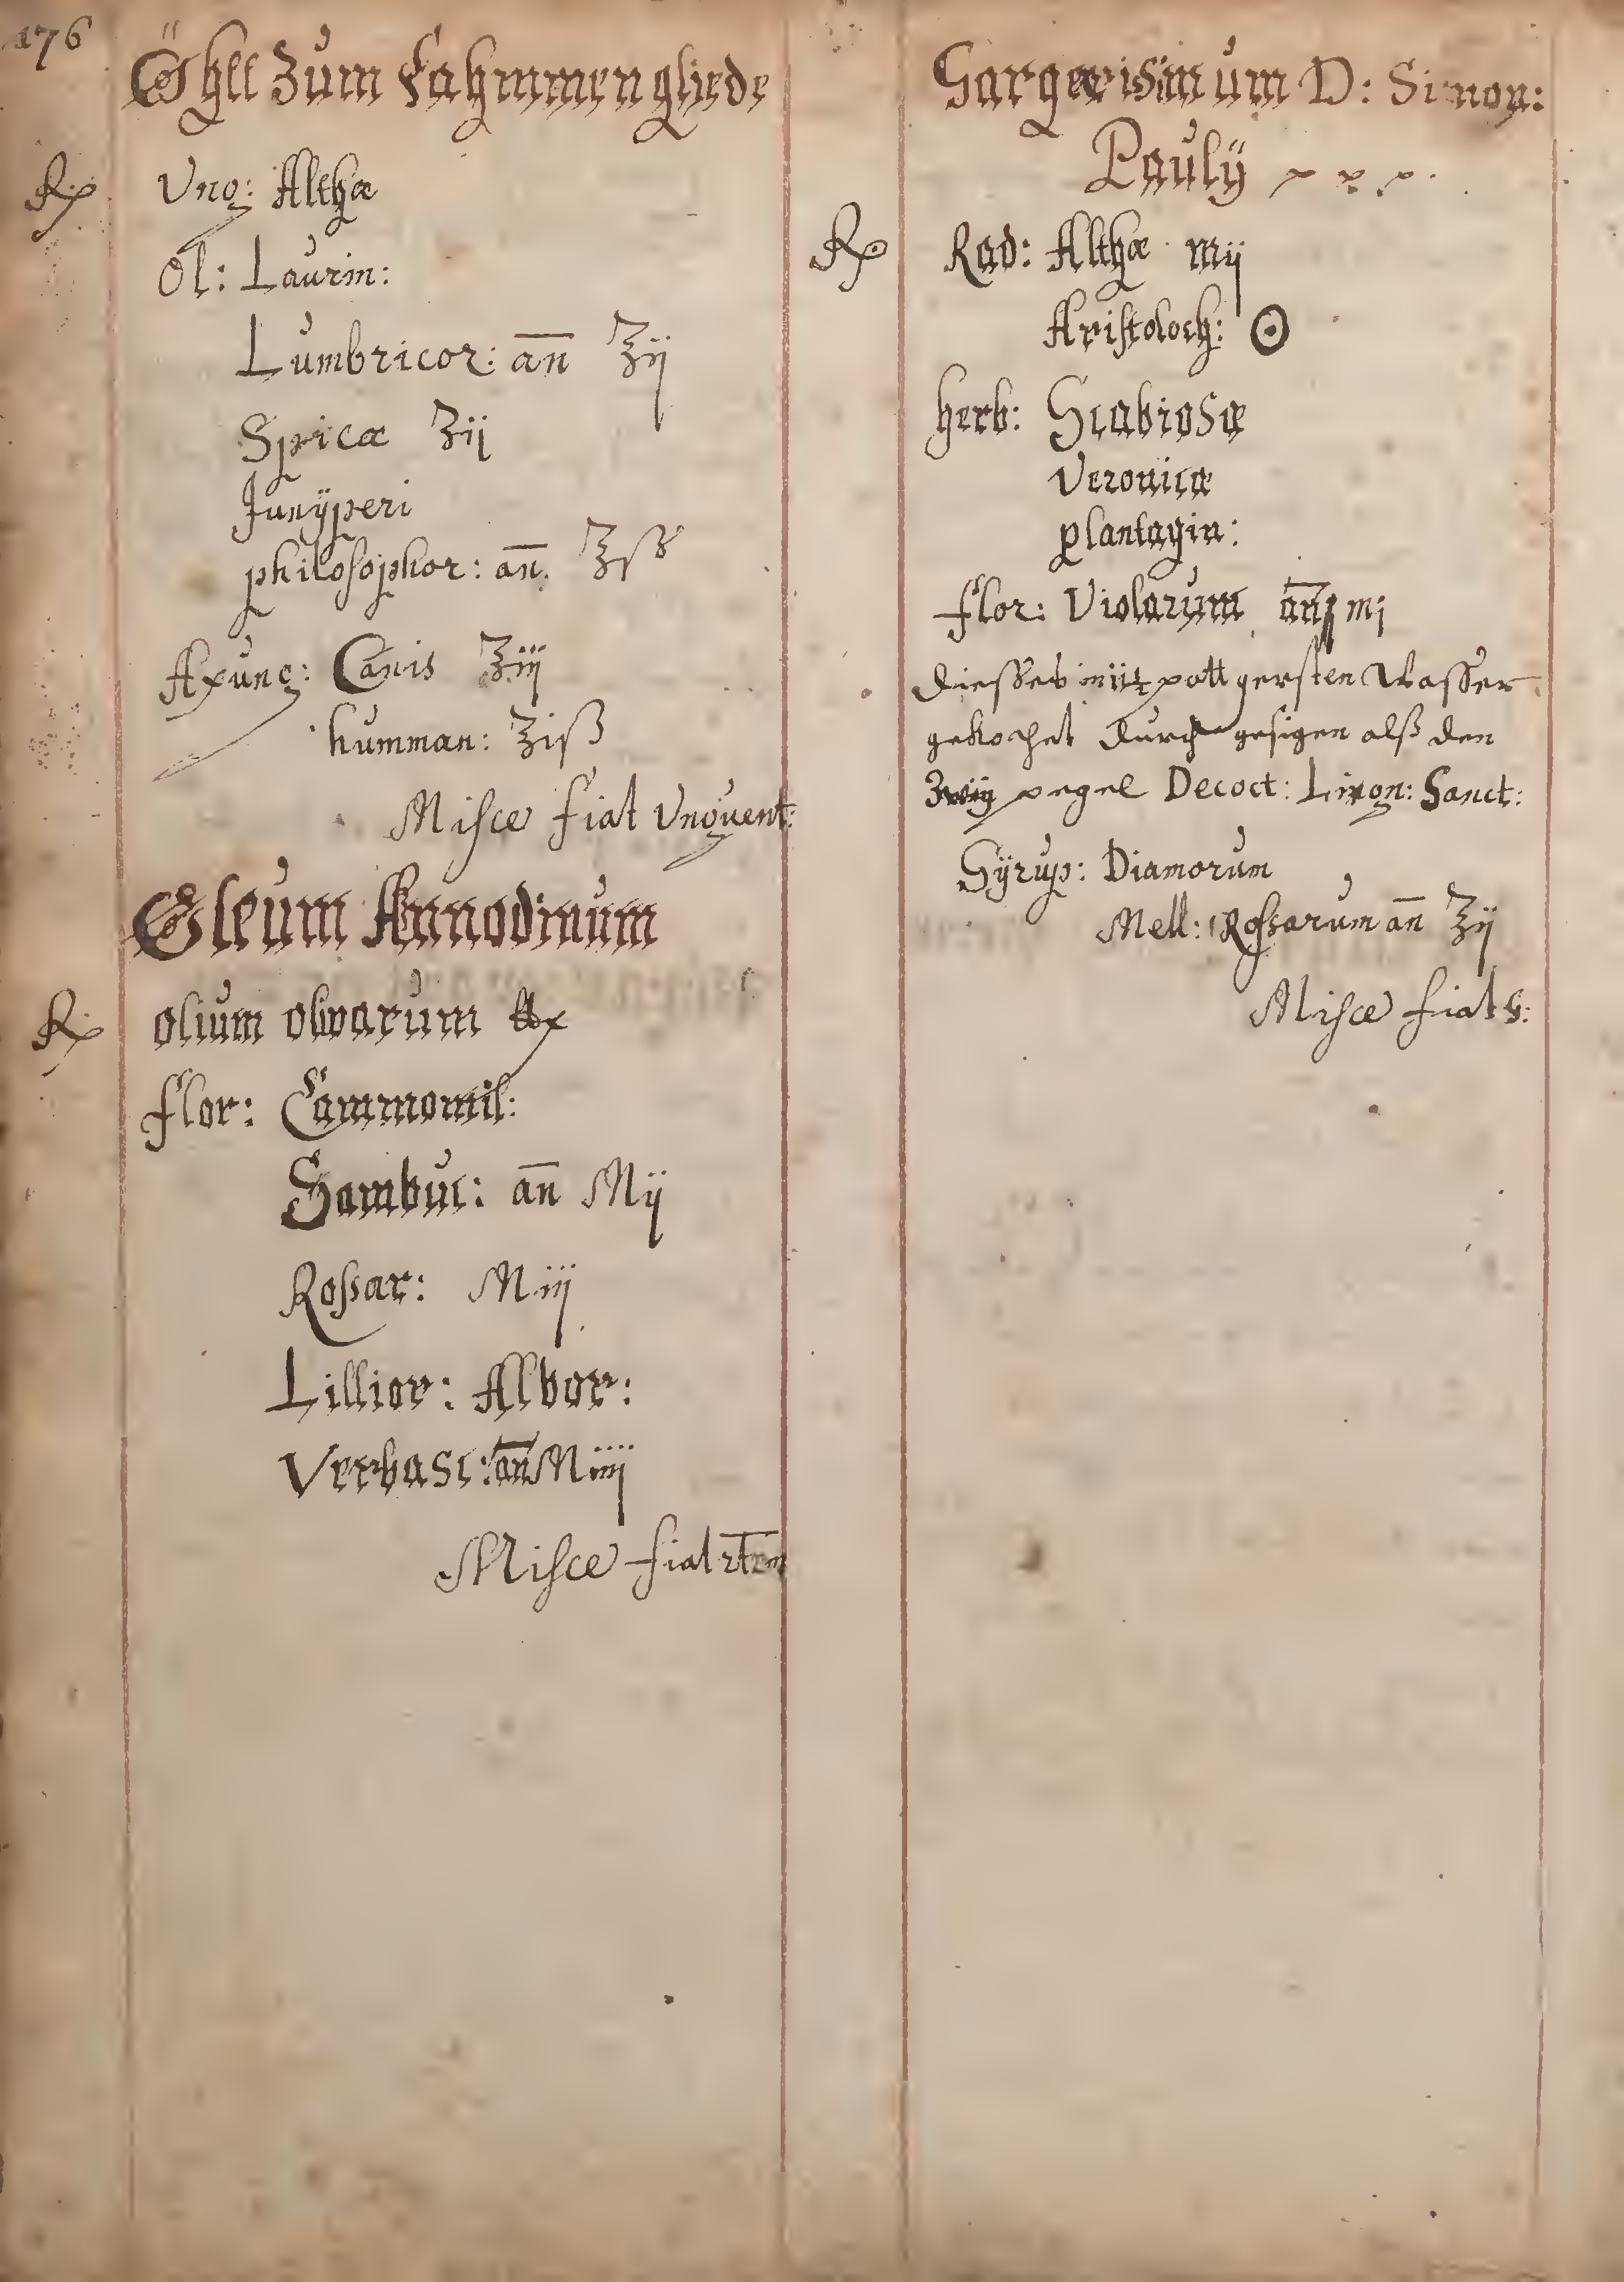 176
Öhll Zum Lahmmen gliede
Rp Ung: Althæ
Ol: Laurin:
Lumbricor: an̄ ʒij
Spicæ ʒij
Junÿperi
philosophor: an̄. ʒiß
Axung: Canis ʒiij
humman: ʒiß
Misce fiat Unguent:
Oleum Annodinum
Rp olium olivarum ℔x
flor: Cammomil:
Sambuc: an̄ Mij
Rossar: Miij
Lillior: Albor:
Verbasc: an̄ Miiij
Misce fiat
Gargerisimum D: Simon:
Paulÿ
Rp Rad: Althæ mij
Aristoloch: ☉
herb: Scabiosæ
Veronicæ
plantagin:
flor: Violarum an̄ mj
diesses in pott gersten Wasser
gekochet durch gesigen alß den
pegel Decoct: Sanct:
Sÿrup: Diamorum
Mell: Rossarum an̄ ʒij
Misce fiat